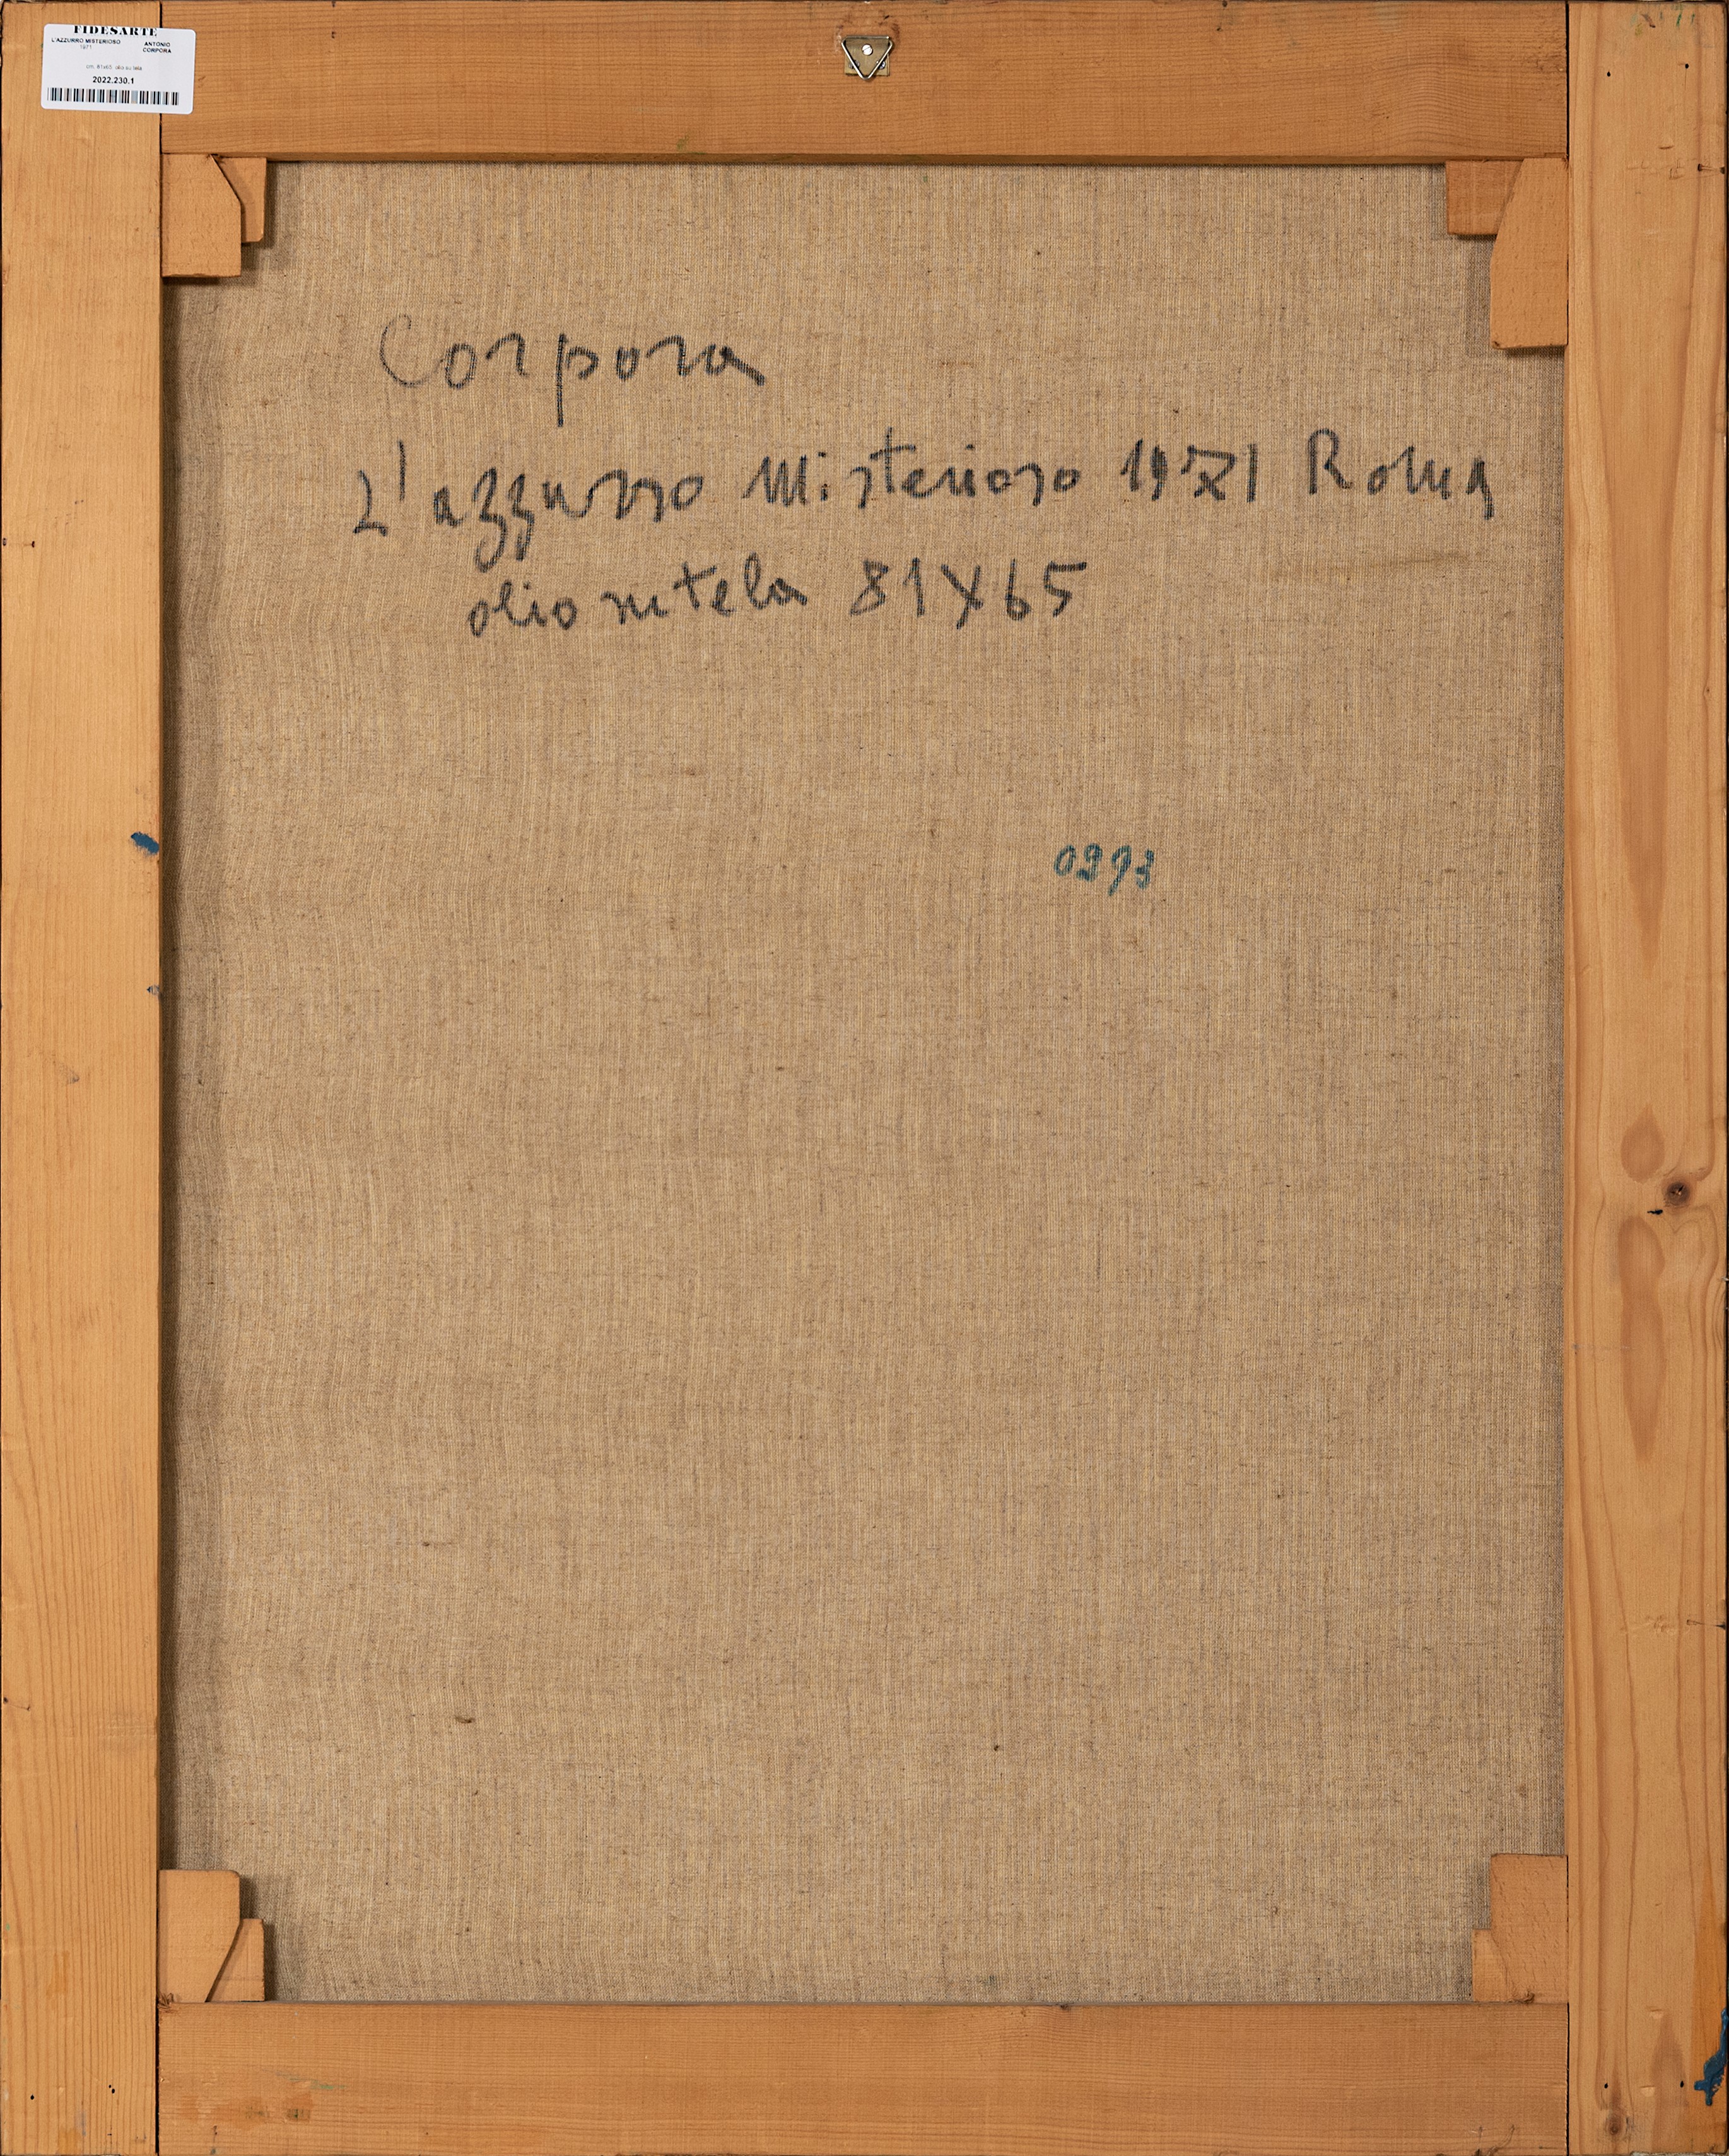 FIDESARTE
L'AZZURRO MISTERIOSO
1971
ANTONIO
CORPORA
cm. 81x65 olio su tela
2022.230.1
Corpora
L'azzurro Misterioso 1971 Roma
olio su tela 81X65
0293